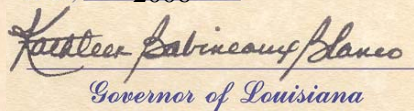 Kathleen Babineaux Blanco
Governor of Louisiana